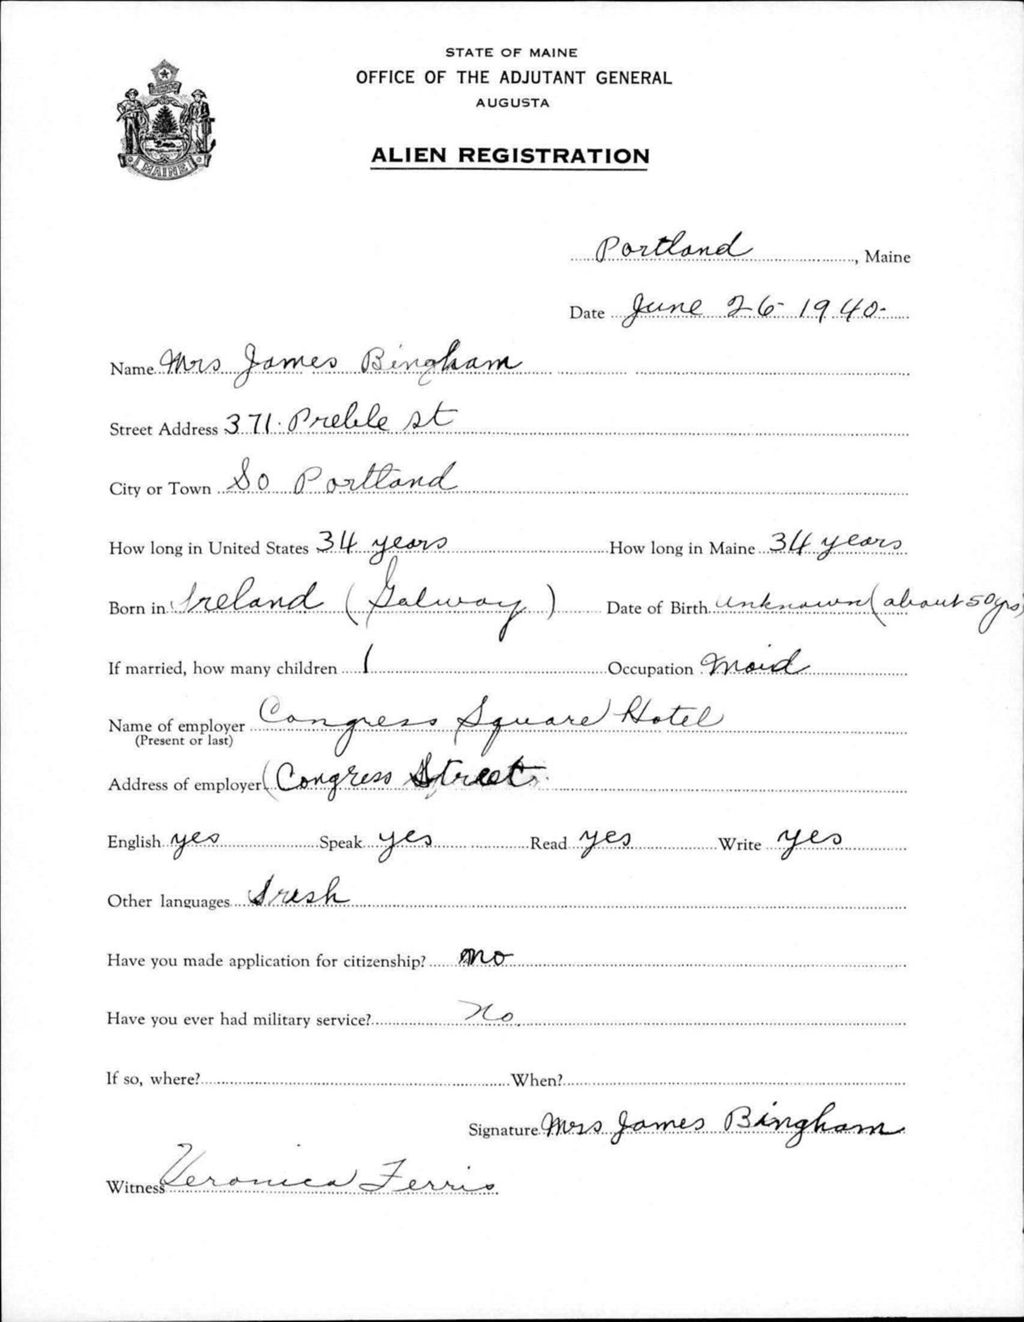 STATE OF MAINE
OFFICE OF THE ADJUTANT GENERAL
AUGUSTA
ALIEN REGISTRATION
MAINE
Portland, Maine
Date June 26 - 1940 -
Name Mrs James Bingham
Street Address 371 · Preble st
City or Town So Portland
How long in United States 34 years How long in Maine 34 years
Born in Ireland (Galway) Date of Birth unknown (about 50 yrs)
If married, how many children 1 Occupation Maid
Name of employer Congress Square Hotel
(Present or last)
Address of employer (Congress Street.
English yes Speak yes Read yes Write yes
Other languages Iresh
Have you made application for citizenship? no
Have you ever had military service? No.
If so, where? When?
Signature Mrs James Bingham
Witness Veronica Ferris